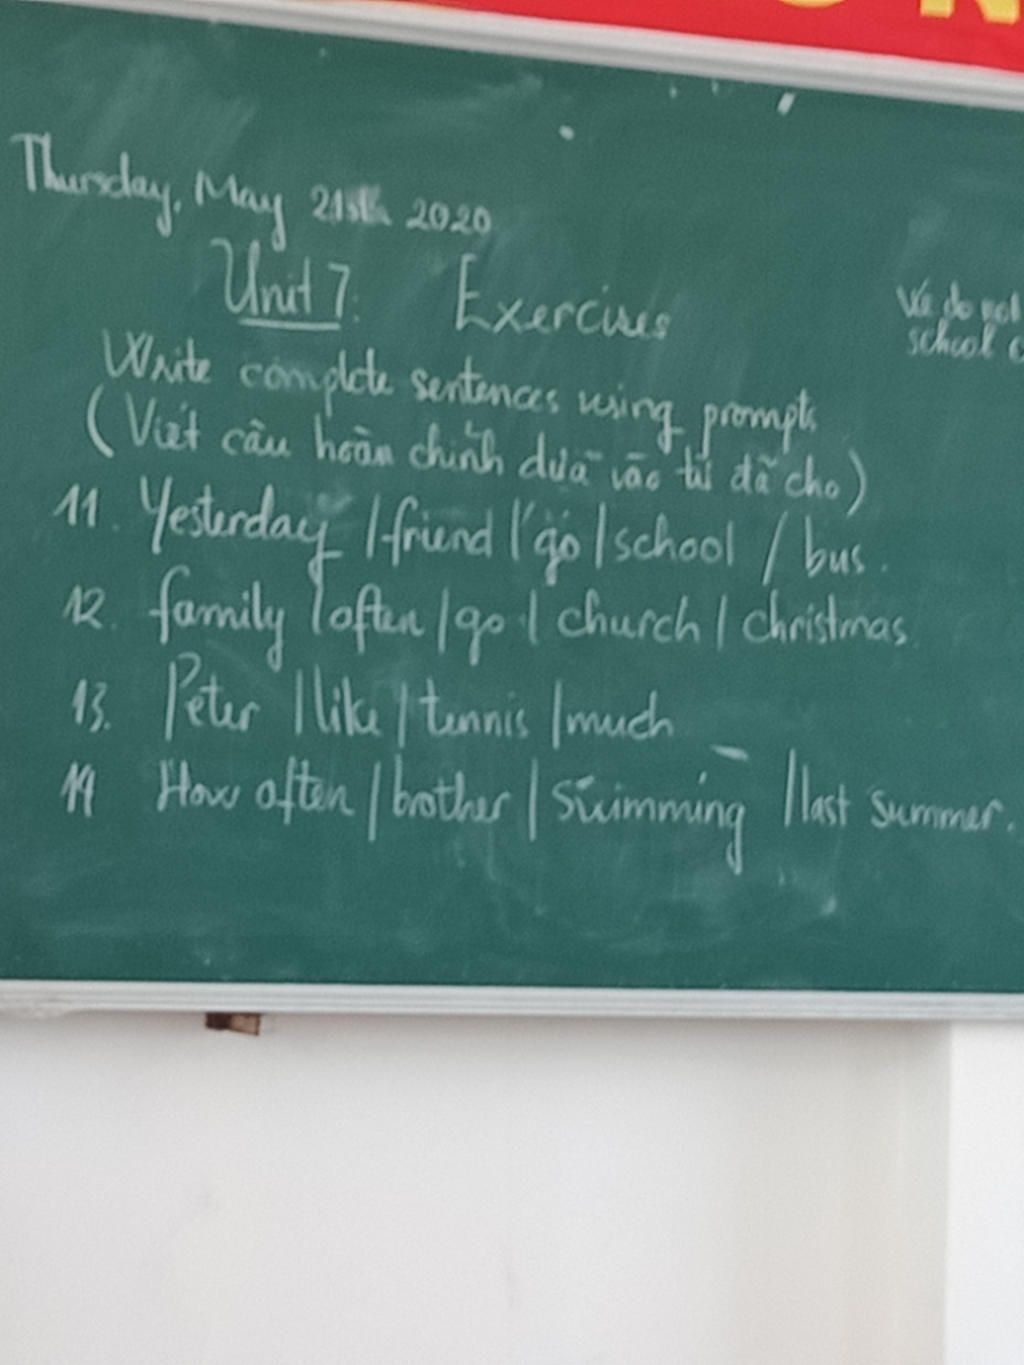 Thursday, May 21st 2020
Unit 7: Exercises
We do not
school
Write complete sentences using prompts
(Viết câu hoàn chỉnh dựa vào từ đã cho)
11. Yesterday / friend / go / school / bus.
12. family / often / go / church / christmas.
13. Peter / like / tennis / much
14 How often / brother / swimming / last summer.